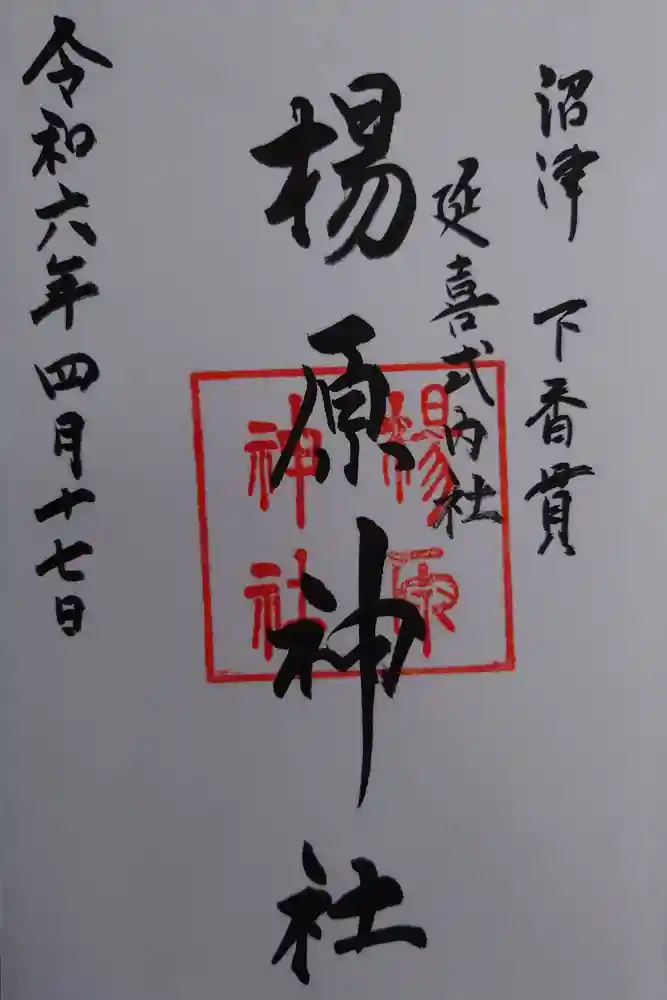 沼津 下香貫
延喜式内社
楊原神社
楊原
神社
令和六年四月十七日